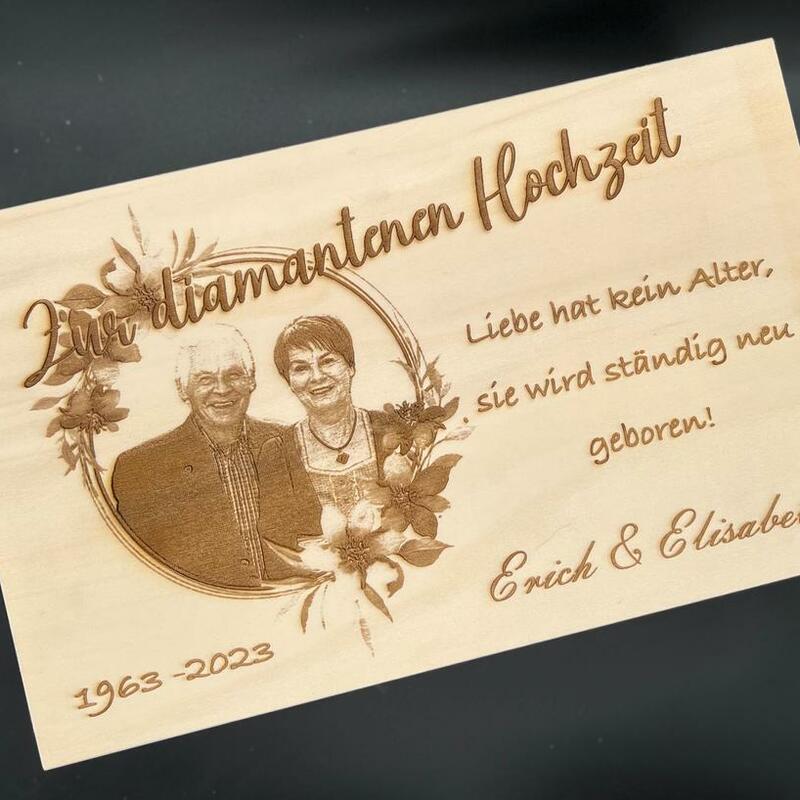 Zur diamantenen Hochzeit
Liebe hat kein Alter,
sie wird ständig neu
geboren!
Erich & Elisabe
1963 -2023